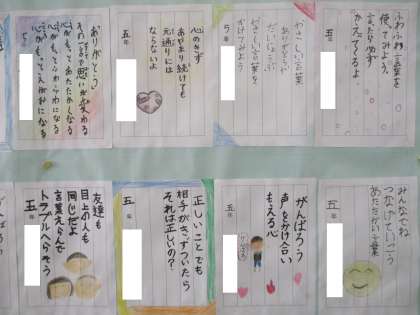 ありがとう
心がもっとあたたかくなる
五年
心のきず
あやまり続けても
元通りには
ならないよ
五年
やさしい言葉
ありがとう
だいじょうぶ
やさしい言葉を
かけてみよう
5年
ふわふわ言葉を
使ってみよう。
言えばかならず
かえってくるよ。
五年
友達も
目上の人も
同じだよ
言葉えらんで
トラブルへらそう
五年
正しいことでも
相手がきずついたら
それは正しいの?
五年
がんばろう
声をかけ合い
もえる心
五年
みんなでね
つなげていこう
あたたかい言葉
五年